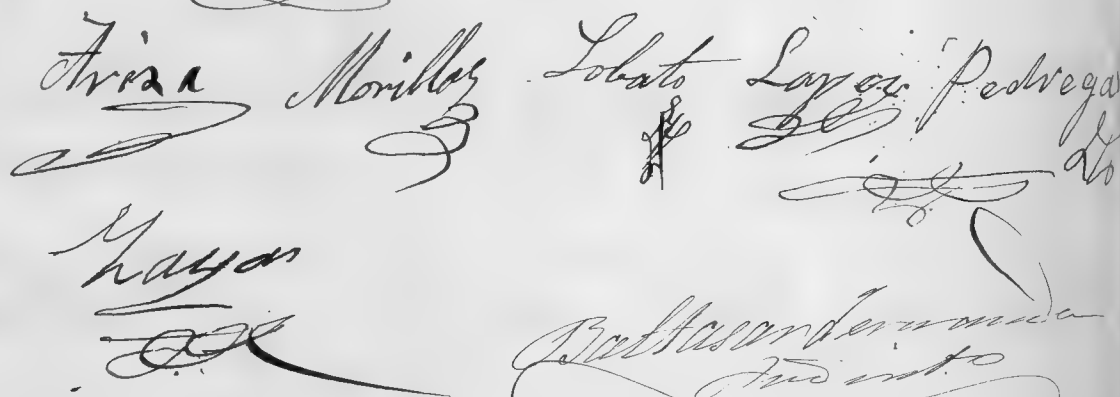 Ariza Morillas Lobato Lopez Pedregal
Zayas
Baltasar